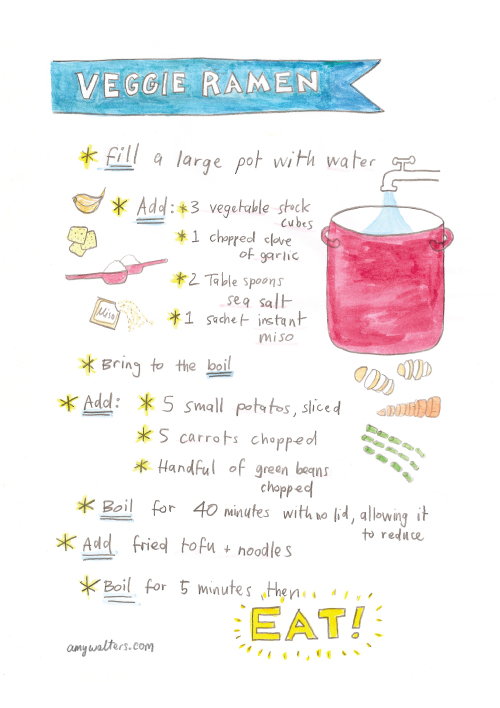 VEGGIE RAMEN
* fill a large pot with water
* Add: * 3 vegetable stock
cubes
* 1 chopped clove
of garlic
* 2 Table spoons
sea salt
Miso
* 1 sachet instant
miso
* Bring to the boil
* Add: * 5 small potatos, sliced
* 5 carrots chopped
* Handful of green beans
chopped
* Boil for 40 minutes with no lid, allowing it
to reduce
* Add fried tofu + noodles
* Boil for 5 minutes then
EAT!
amywalters.com